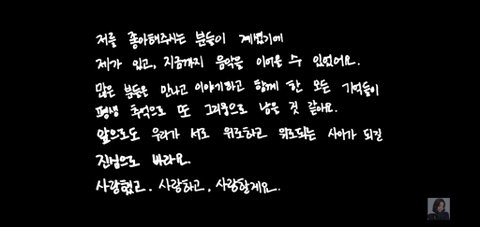 저를 좋아해주시는 분들이 계셨기에
제가 있고, 지금까지 음악을 이어올 수 있었어요.
많은 분들을 만나고 이야기하고 함께 한 모든 기억들이
평생 추억으로 또 그리움으로 남을 것 같아요.
앞으로도 우리가 서로 위로하고 위로되는 사이가 되길
진심으로 바라요.
사랑했고, 사랑하고, 사랑할게요.